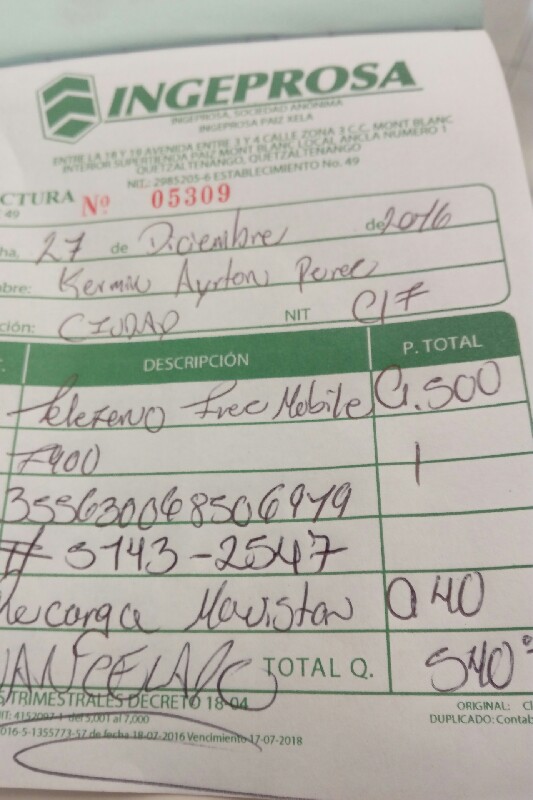 INGEPROSA
INGEPROSA, SOCIEDAD ANÓNIMA
INGEPROSA PAIZ XELA
ENTRE LA 18 Y 19 AVENIDA ENTRE 3 Y 4 CALLE ZONA 3 C.C. MONT BLANC
INTERIOR SUPERTIENDA PAIZ MONT BLANC LOCAL ANCLA NUMERO 1
QUETZALTENANGO, QUETZALTENANGO
NIT.: 2985205-6 ESTABLECIMIENTO No. 49
CTURA Nº 05309
49
ha. 27 de Diciembre de 2016
bre: Kermin Ayrton Perez
ción: CIUDAD NIT C/F
DESCRIPCIÓN P. TOTAL
Telefono Free Mobile Q.500
F900
355630068506979
# 5143-2547
Recarga Movistar Q 40
CANCELADO TOTAL Q. 540
S TRIMESTRALES DECRETO 18-04
IT: 4152097-1 del 5,001 al 7,000
016-5-1355773-57 de fecha 18-07-2016 Vencimiento 17-07-2018
ORIGINAL: Cl
DUPLICADO: Contab